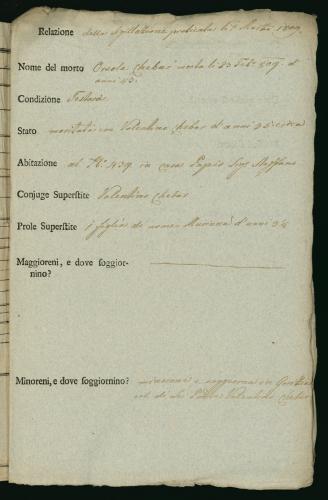 Relazione della praticata li 1 Marzo 1809
Nome del morto Orsola Chebar morta li 23 Feb. 809. d'
anni 43.
Condizione
Stato maritata con Valentino Chebar d'anni 35 circa
Abitazione al N. 439 in casa
Conjuge Superstite Valentino Chebar
Prole Superstite 1 figlia di nome d'anni
Maggioreni, e dove soggior-
nino?
Minoreni, e dove soggiornino? minorenne e soggiorna in
col di lei Padre Valentino Chebar